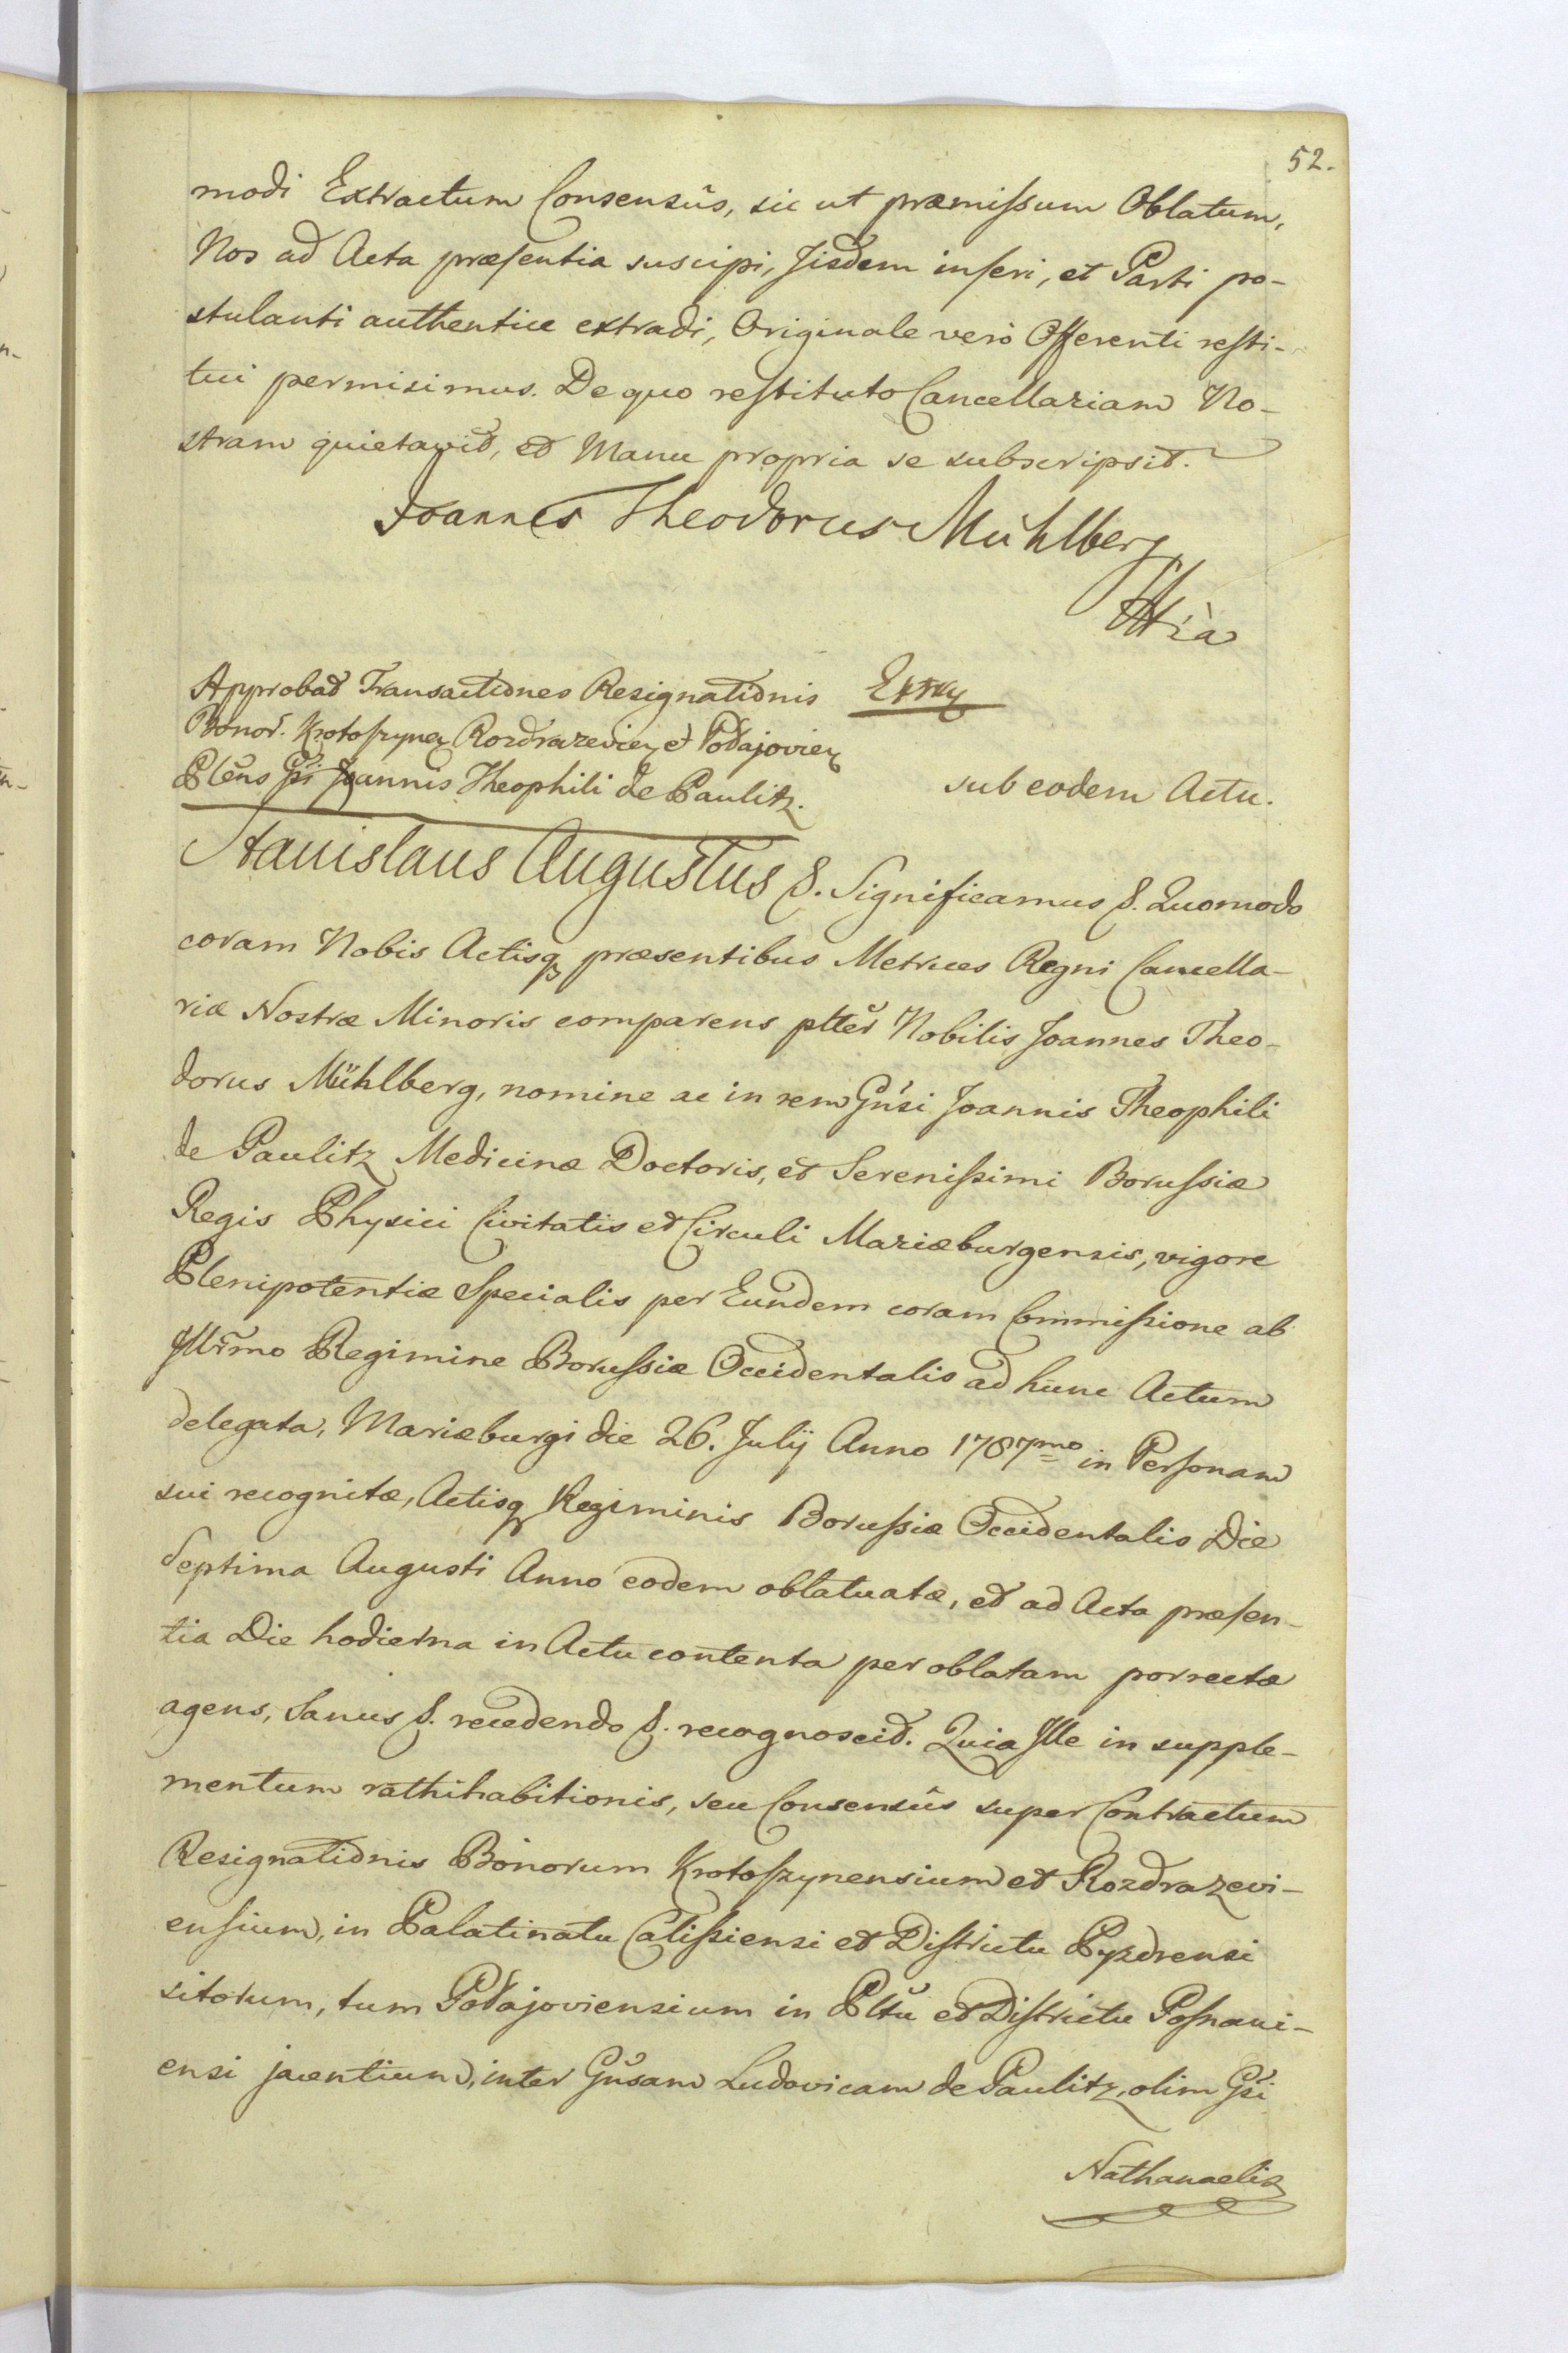 52.
modi Extractum Consensûs, sic ut præmissum Oblatum,
Nos ad Acta præsentia suscipi, Iisdem inseri, et Parti po-
stulanti authentice extradi, Originale verò Offerenti resti-
tui permisimus. De quo restituto Cancellariam No-
stram quietavit, et Manu propria se subscripsit.
Joannes Theodorus Mühlberg
Approbat Transactiones Resignationis
Bonor. Krotoszynen Rozdrazevien et Podajovien
Plens Gsi Joannis Theophili de Paulitz.
sub eodem Actu.
Stanislaus Augustus &. Significamus &. Quomodo
coram Nobis Actisq præsentibus Metrices Regni Cancella-
riæ Nostræ Minoris comparens pltter Nobilis Joannes Theo-
dorus Mühlberg, nomine ac in rem Gnsi Joannis Theophili
de Paulitz Medicinæ Doctoris, et Serenissimi Borussiæ
Regis Physici Civitatis et Circuli Mariæburgensis, vigore
Plenipotentiæ Specialis per Eundem coram Commissione ab
Illrmo Regimine Borussiæ Occidentalis ad hunc Actum
delegata, Mariæburgi die 26. Julij Anno 1787mo in Personam
sui recognitæ, Actisq Regiminis Borussiæ Occidentalis Die
Septima Augusti Anno eodem oblatuatæ, et ad Acta præsen-
tia Die hodierna in Actu contenta per oblatam porrectæ
agens, Sanus &. recedendo &. recognoscit. Quia Ille in supple-
mentum rathihabitionis, seu Consensûs super Contractum
Resignationis Bonorum Krotoszynensium et Rozdrazevi-
ensium, in Palatinatu Calissiensi et Districtu Pyzdrensi
sitorum, tum Podajoviensium in Pltu et Districtu Posnani-
ensi jacentium, inter Gnsam Ludovicam de Paulitz, olim Gsi
Nathanaelis